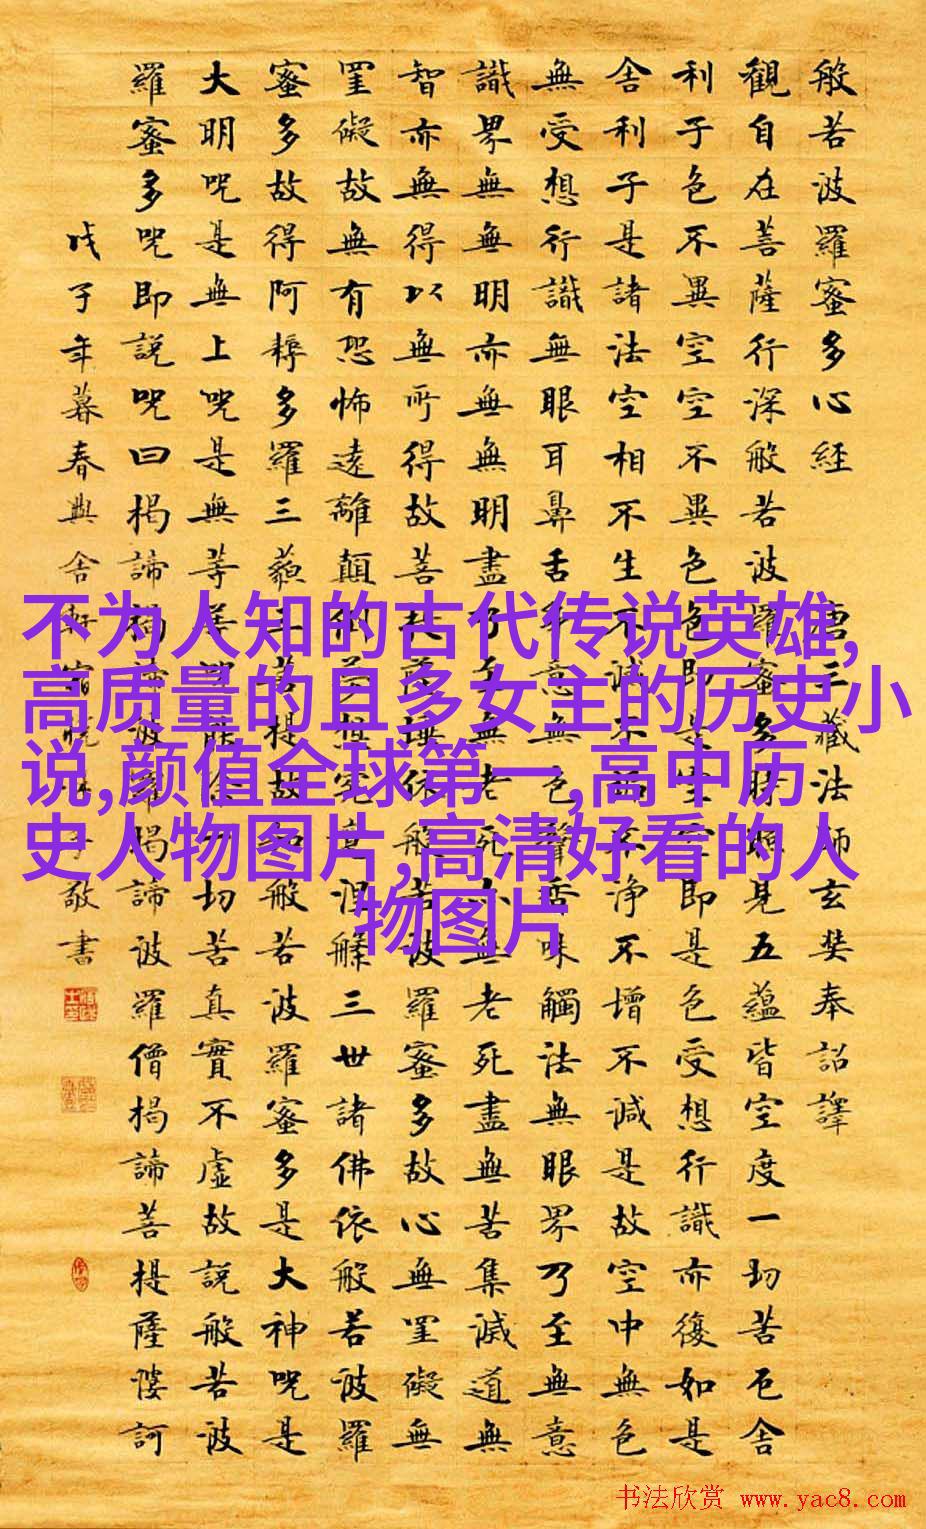 般若波羅蜜多心經 唐三藏法師玄奘奉詔譯
觀自在菩薩行深般若波羅蜜多時照見五蘊皆空度一切苦厄舍
利子色不異空空不異色色即是空空即是色受想行識亦復如是
舍利子是諸法空相不生不滅不垢不淨不增不減是故空中無色
無受想行識無眼耳鼻舌身意無色聲香味觸法無眼界乃至無意
識界無無明亦無無明盡乃至無老死亦無老死盡無苦集滅道無
智亦無得以無所得故菩提薩埵依般若波羅蜜多故心無罣礙無
罣礙故無有恐怖遠離顛倒夢想究竟涅槃三世諸佛依般若波羅
蜜多故得阿耨多羅三藐三菩提故知般若波羅蜜多是大神呪是
大明呪是無上呪是無等等呪能除一切苦真實不虛故說般若波
羅蜜多呪即說呪曰揭諦揭諦波羅揭諦波羅僧揭諦菩提薩婆訶
戊子年暮春 敬書
不为人知的古代传说英雄,
高质量的且多女主的历史小
说,颜值全球第一,高中历
史人物图片,高清好看的人
物图片
书法欣赏 www.yac8.com